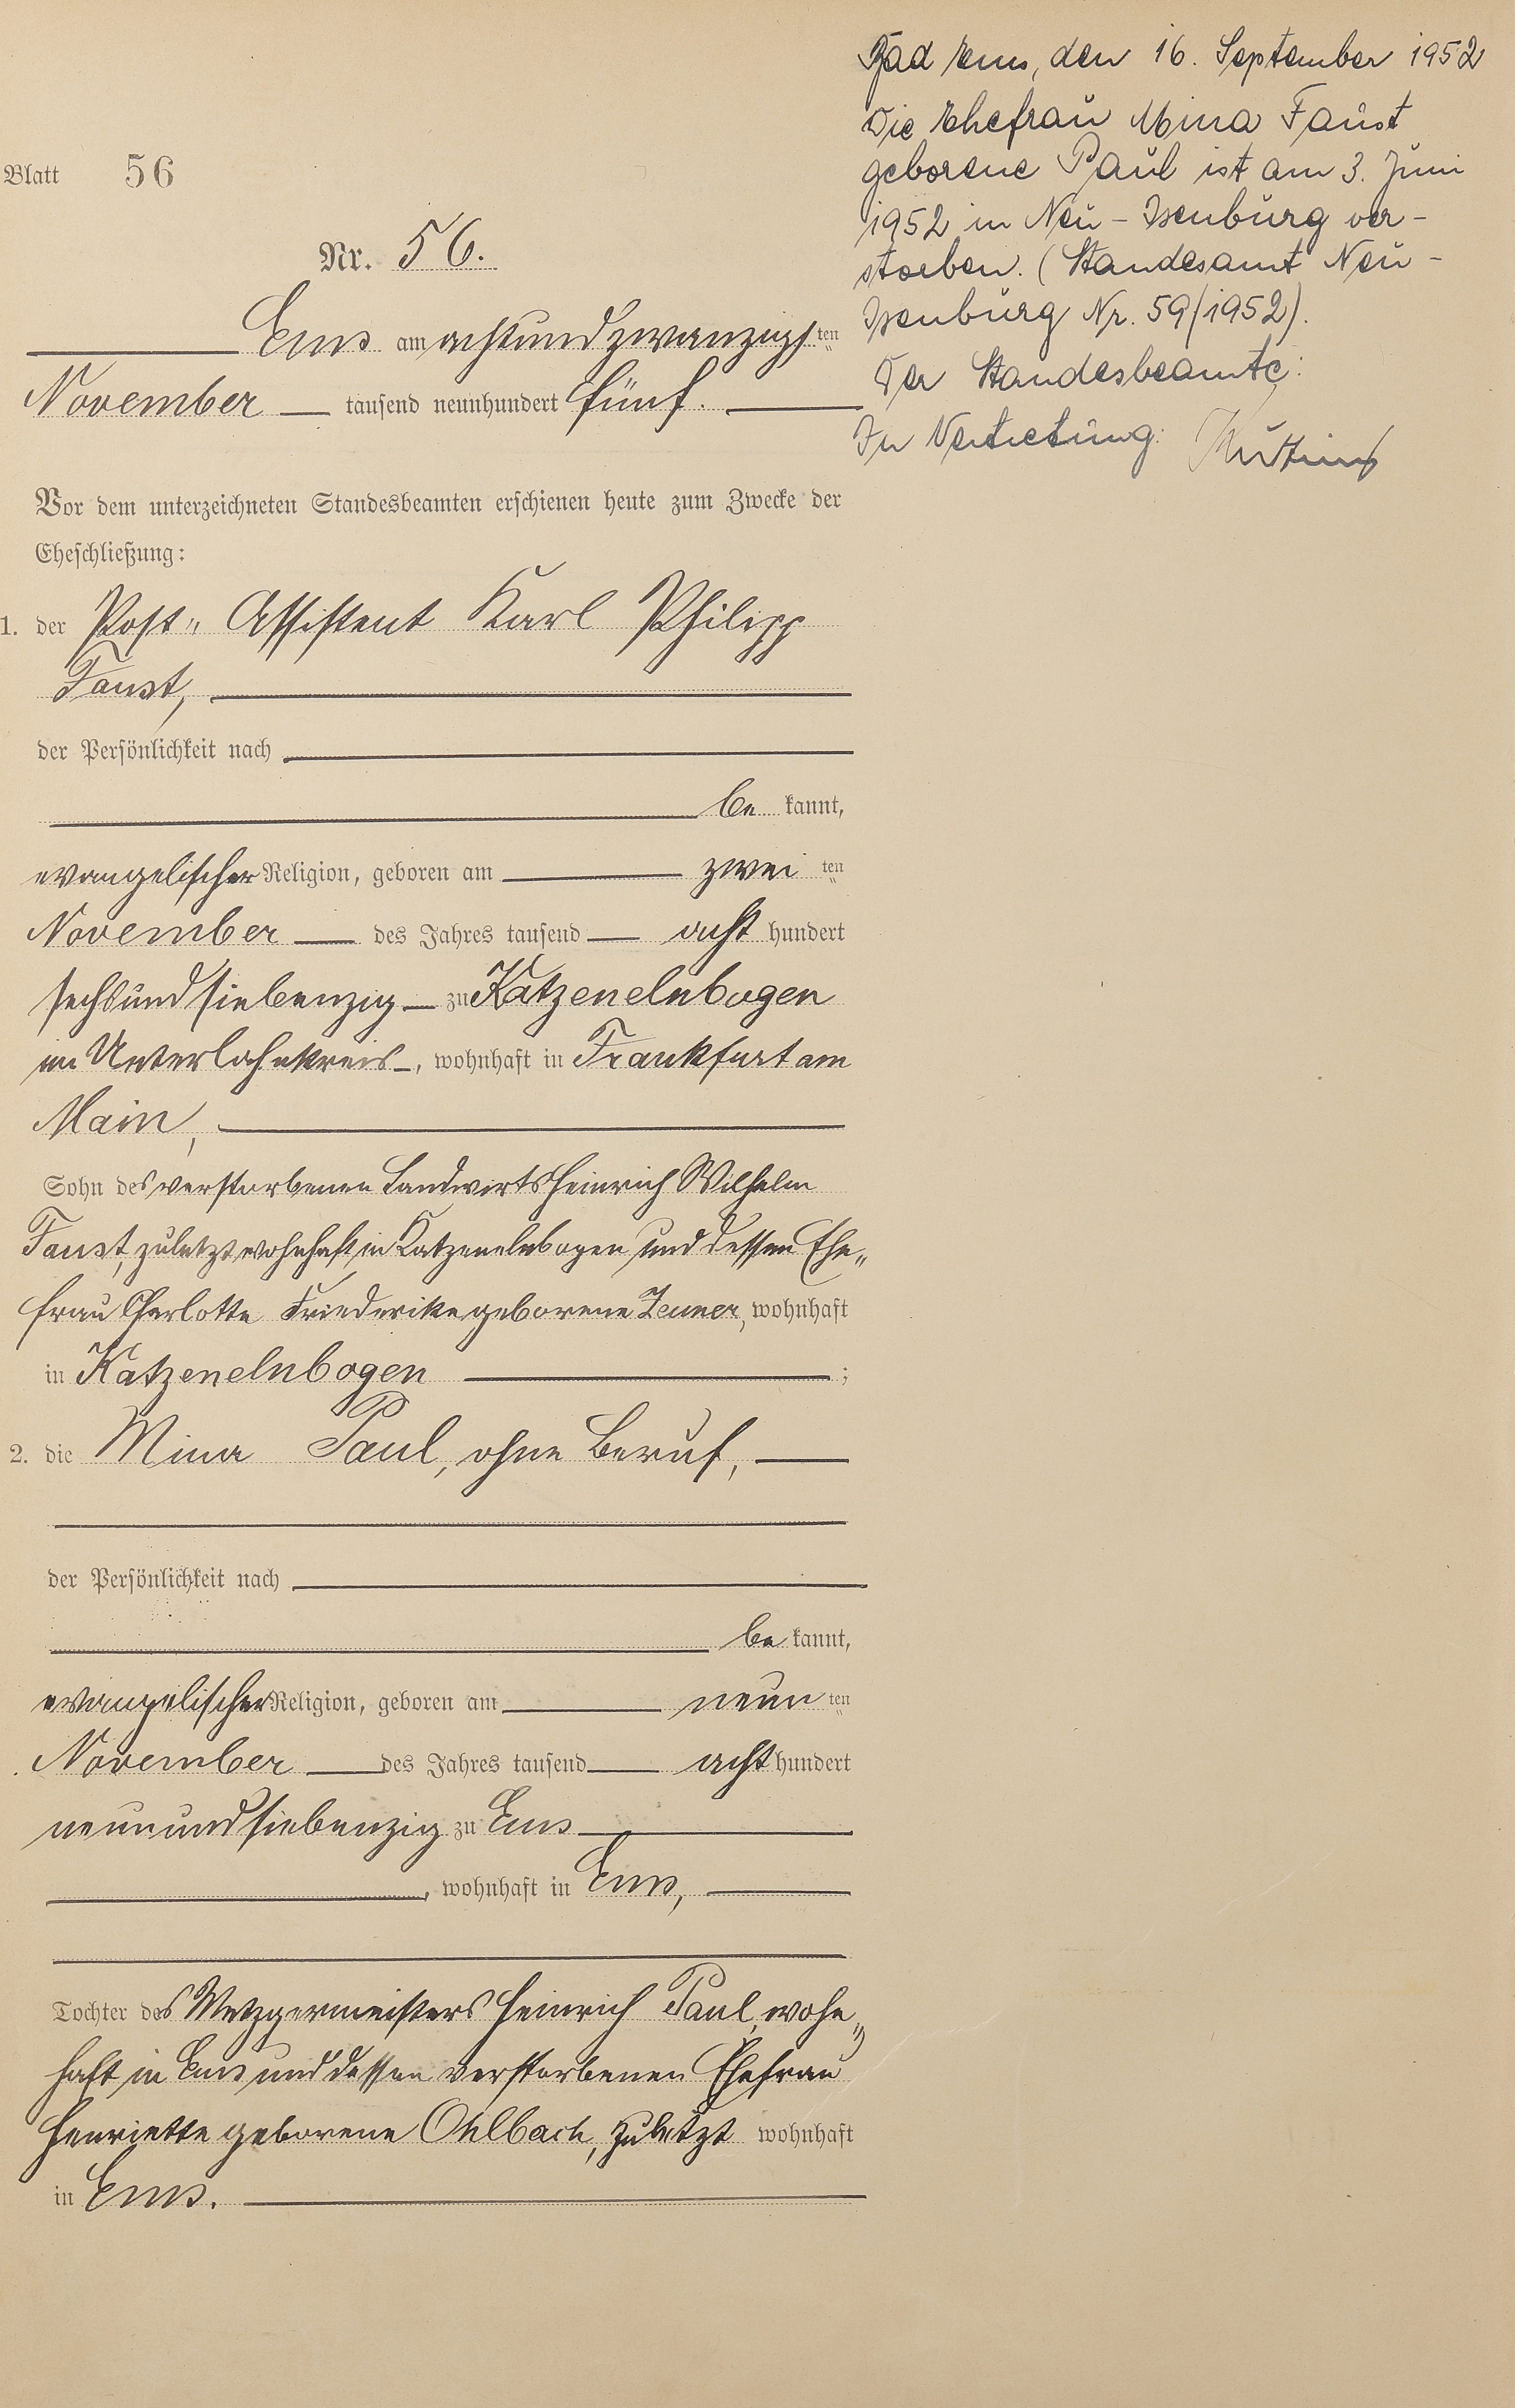 Blatt 56
Nr. 56.
Ems am achtundzwanzigsten
November tausend neunhundert fünf.
Vor dem unterzeichneten Standesbeamten erschienen heute zum Zwecke der
Eheschließung:
1. der Post-Assistent Karl Philipp
Faust,
der Persönlichkeit nach
be kannt,
evangelischer Religion, geboren am zwei ten
November des Jahres tausend acht hundert
sechsundsiebenzig zu Katzenelnbogen
im Unterlahnkreis, wohnhaft in Frankfurt am
Main,
Sohn des verstorbenen Landwirts Heinrich Wilhelm
Faust, zuletzt wohnhaft in Katzenelnbogen und dessen Ehe-
frau Charlotte Friederike geborene Zeuner, wohnhaft
in Katzenelnbogen ;
2. die Mina Paul, ohne Beruf,
der Persönlichkeit nach
be kannt,
evangelischer Religion, geboren am neun ten
November des Jahres tausend acht hundert
neunundsiebenzig zu Ems
, wohnhaft in Ems,
Tochter des Metzgermeisters Heinrich Paul, wohn-
haft in Ems und dessen verstorbenen Ehefrau
Henriette geborene Ohlbach, zuletzt wohnhaft
in Ems.
Bad Ems, den 16. September 1952
Die Ehefrau Mina Faust
geborene Paul ist am 3. Juni
1952 in Neu-Isenburg ver-
storben. (Standesamt Neu-
Isenburg Nr. 59/1952).
Der Standesbeamte:
In Vertretung: